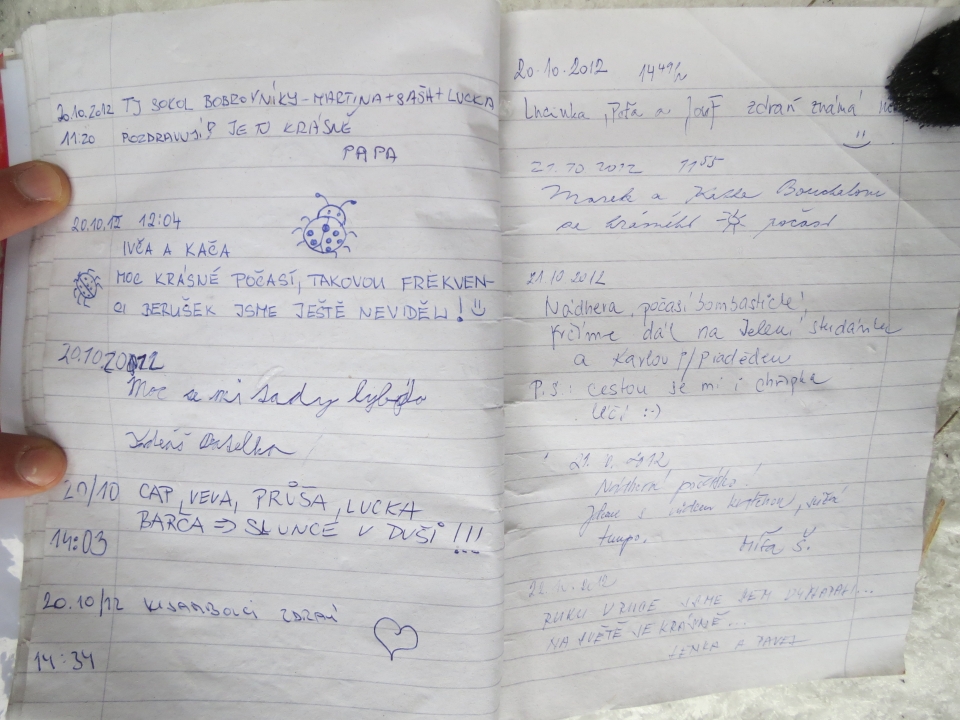 20.10.2012 TJ SOKOL BOBROVNÍKY - MARTINA + SAŠA + LUCKA
11:20 POZDRAVUJÍ! JE TU KRÁSNĚ
PAPA
20.10.12 12:04
IVČA A KAČA
MOC KRÁSNÉ POČASÍ, TAKOVOU FREKVEN-
CI BERUŠEK JSME JEŠTĚ NEVIDĚLI! :)
20.10.2012
Moc se mi tady lybylo
20/10 CAP, VEVA, PRŮŠA, LUCKA
BARČA => SLUNCE V DUŠI!!!
14:03
20.10/12 zdraví
14:34
20.10.2012 14 49 h
Lucinka, a Jouf zdraví známá
21.10 2012 11 55
Marek a
za krásného počasí
21.10 2012
Nádhera, počasí bombastické!
frčíme dál na Jelení studánku
a Karlov p/Pradědem
P.S.: cestou se mi i chřipka
léčí :-)
2012
Nádherné
Jdeme s
tempo. Míťa Š.
RUKU V RUCE JSME SEM
NA SVĚTĚ JE KRÁSNĚ...
LENKA A PAVEL